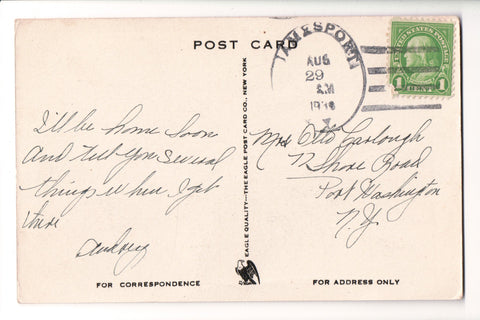 POST CARD
JAMESPORT
AUG
29
AM
UNITED STATES POSTAGE
1 CENT 1
I'll be home soon
and tell you several
things when I get
there
Audrey
EAGLE QUALITY—THE EAGLE POST CARD CO., NEW YORK
Mrs Otto Carlough
Shore Road
Port Washington
N.Y.
FOR CORRESPONDENCE
FOR ADDRESS ONLY